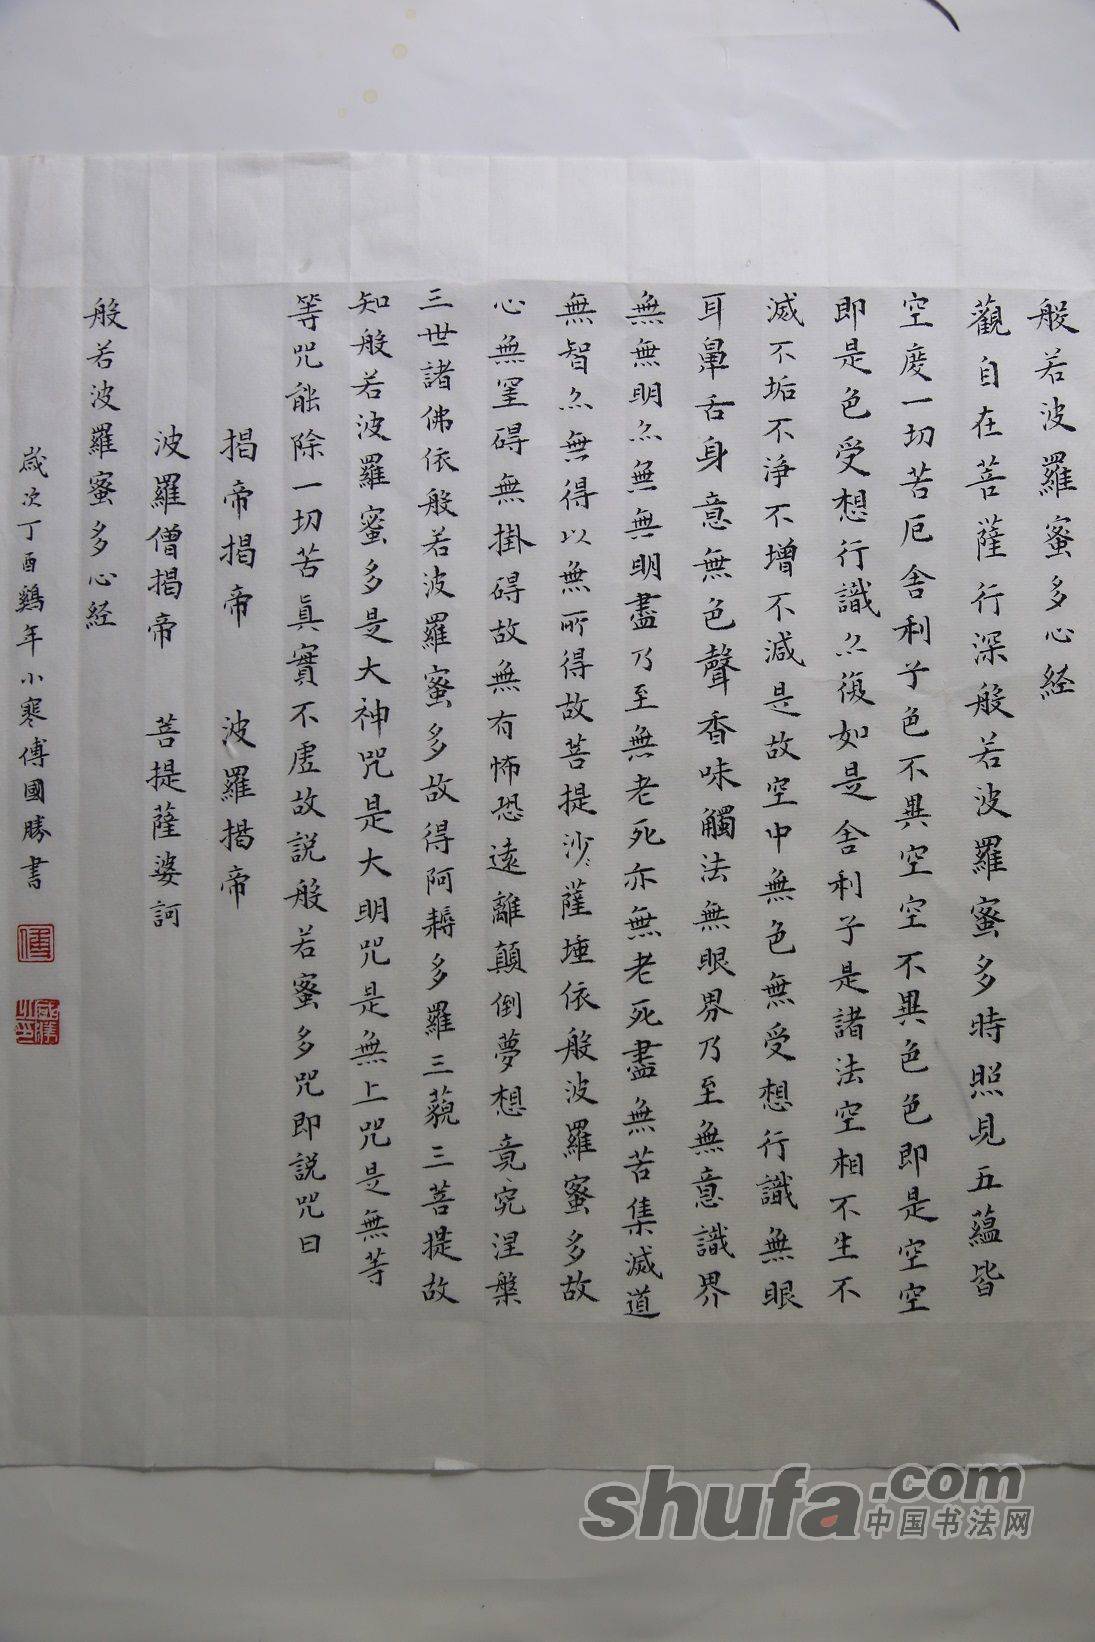 般若波羅蜜多心经
觀自在菩薩行深般若波羅蜜多時照見五蘊皆
空度一切苦厄舍利子色不異空空不異色色即是空空
即是色受想行識亦復如是舍利子是諸法空相不生不
滅不垢不淨不增不減是故空中無色無受想行識無眼
耳鼻舌身意無色聲香味觸法無眼界乃至無意識界
無無明亦無無明盡乃至無老死亦無老死盡無苦集滅道
無智亦無得以無所得故菩提沙薩埵依般波羅蜜多故
心無罣碍無掛碍故無有怖恐遠離顛倒夢想竟究涅槃
三世諸佛依般若波羅蜜多故得阿耨多羅三藐三菩提故
知般若波羅蜜多是大神咒是大明咒是無上咒是無等
等咒能除一切苦真實不虛故説般若蜜多咒即説咒曰
揭帝揭帝 波羅揭帝
波羅僧揭帝 菩提薩婆訶
般若波羅蜜多心经
歲次丁酉鷄年小寒傅國勝書
shufa.com
中国书法网